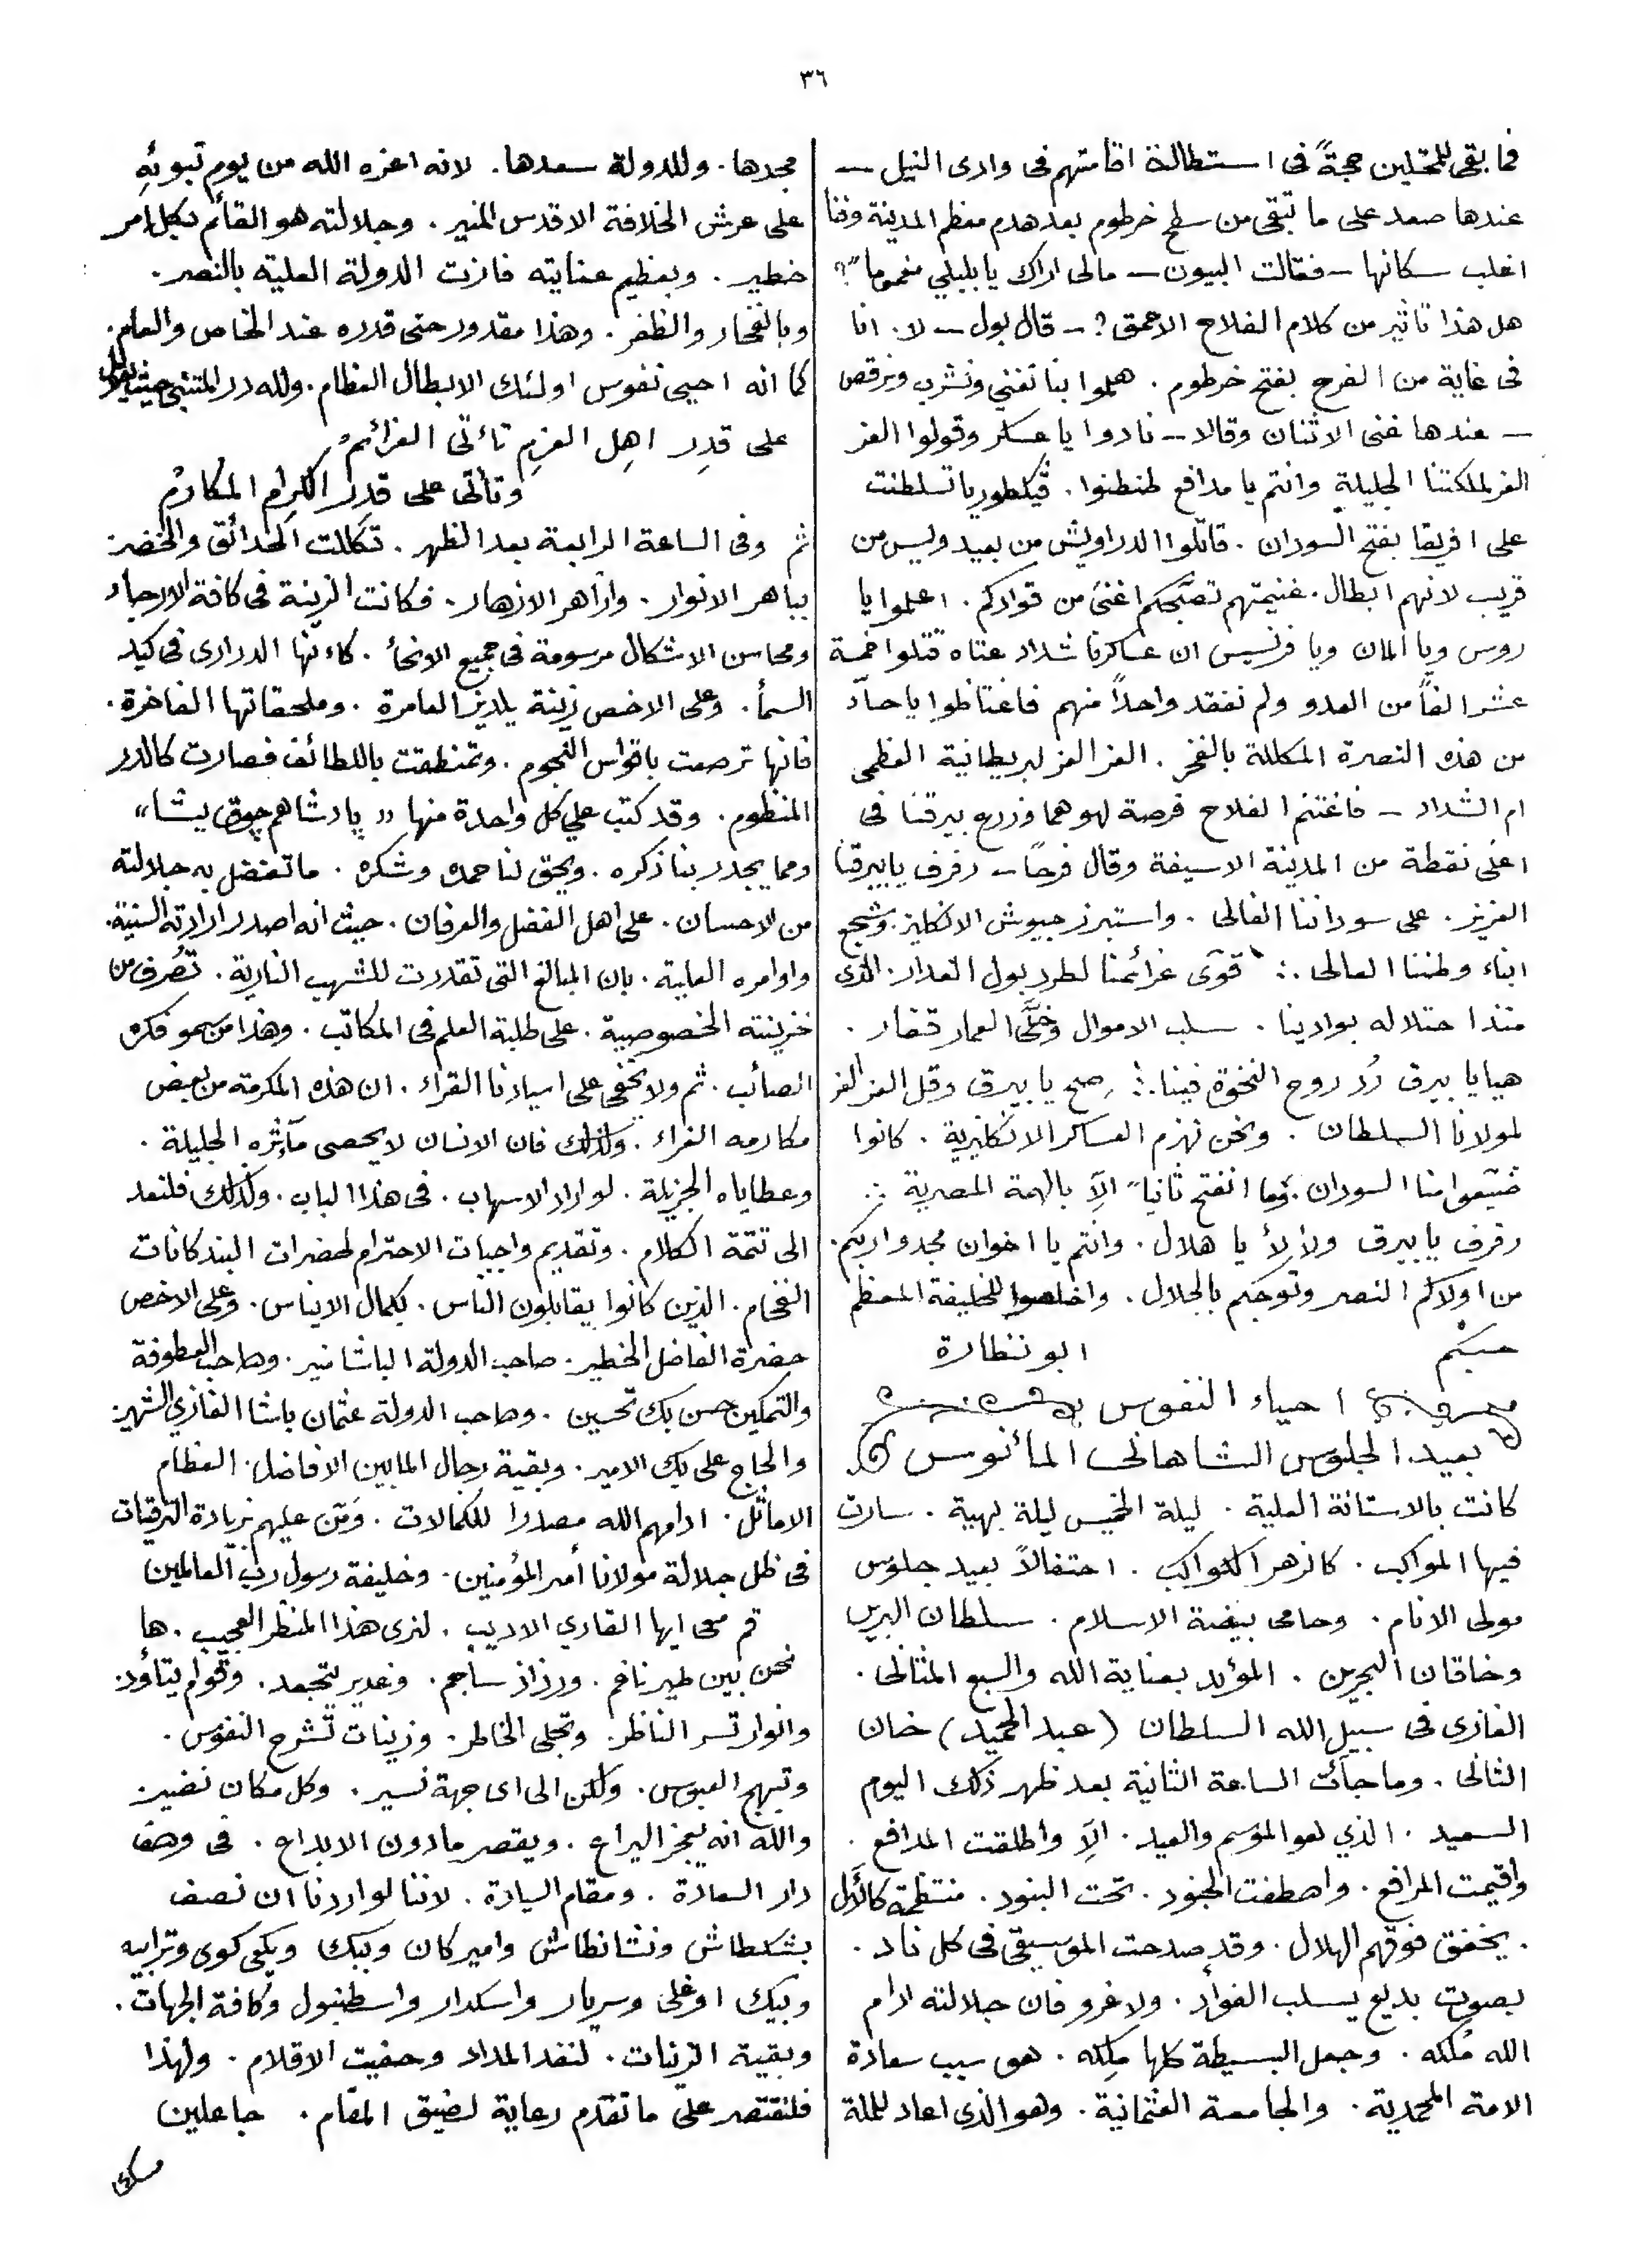 ٣٦
فما بقى للمحتلين حجةً فى استطالة اقامتهم فى وادى النيل —
عندها صعد على ما تبقى من سطح خرطوم بعد هدم معظم المدينة وفنا
اغلب سكانها — فقالت البيون — مالى اراك يا بلبلي مغموما"؟
هل هذا تأثير من كلام الفلاح الاحمق؟ — قال بول — لا. انا
فى غاية من الفرح بفتح خرطوم. هلموا بنا نغني ونشرب ونرقص
— عندها غنى الاثنان وقالا — نادوا يا عسكر وقولوا العز
العز لملكتنا الجليلة وانتم يا مدافع طنطنوا. ڤيكطوريا تسلطنت
على افريقا بفتح السودان. قاتلوا الدراويش من بعيد وليس من
قريب لانهم ابطال. غنيمتهم تصبّحكم اغنى من قوادكم. اعلموا يا
روس ويا المان ويا فرنسيس ان عساكرنا شداد عتاه قتلوا خمسة
عشر الفاً من العدو ولم نفقد واحداً منهم فاغتاظوا يا حسّاد
من هذه النصرة المكللة بالفخر. العز العز لبريطانية العظمى
ام الشداد — فاغتنم الفلاح فرصة لهوهما وزرع بيرقنا فى
اعلى نقطة من المدينة الاسيفة وقال فرحًا — رفرف يا بيرقنا
العزيز. على سوداننا الغالى. واستبرز جيوش الانكليز. وشجع
ابناء وطننا العالى ∴ قوّى عزائمنا لطرد بول الغدار. الذى
منذ احتلاله بوادينا. سلب الاموال وخلّى العمار قفار.
هيا يا بيرق رُد روح النخوة فينا ∴ صح يا بيرق وقل العز العز
لمولانا السلطان. ونحن نهزم العساكر الانكليزية. كانوا
ضيّعوا منا السودان. وما انفتح ثانيا" الاّ بالهمة المصرية ∴
رفرف يا بيرق ولألأ يا هلال. وانتم يا اخوان مجدوا ربكم.
من اولاكم النصر وتوجكم بالجلال. واخلصوا للخليفة المعظم
حبكم ابو نظارة
احياء النفوس
بعيد الجلوس الشاهانى المأنوس
كانت بالاستانة العلية. ليلة الخميس ليلة بهية. سارت
فيها المواكب. كازهر الكواكب. احتفالاً بعيد جلوس
مولى الانام. وحامى بيضة الاسلام. سلطان البرين
وخاقان البحرين. المؤيد بعناية الله والسبع المثانى.
الغازى فى سبيل الله السلطان (عبد الحميد) خان
الثانى. وما جأت الساعة الثانية بعد ظهر ذلك اليوم
السعيد. الذي هو الموسم والعيد. الاّ واطلقت المدافع.
واقيمت المرافع. واصطفت الجنود. تحت البنود. منتظمة كاللآل
. يخفق فوقهم الهلال. وقد صدحت الموسيقى فى كل ناد.
بصوت بديع يسلب الفوأد. ولا غرو فان جلالته ادام
الله مُلكه. وجعل البسيطة كلها مِلكه. هو سبب سعادة
الامة المحمدية. والجامعة العثمانية. وهو الذى اعاد للملة
مجدها. وللدولة سعدها. لانه اعزه الله من يوم تبوئهِ
على عرش الخلافة الاقدس المنير. وجلالته هو القائم بكل امر
خطير. وبعظيم عنايته فازت الدولة العلية بالنصر.
وبالفخار والظفر. وهذا مقدور حتى قدره عند الخاص والعام.
كما انه احيى نفوس اولئك الابطال العظام. ولله در المتنبي حيث
على قدِر اهِل العزِم تأتى العزائمُ
وتأتى على قدر الكرام المكارمُ
ثم وفى الساعة الرابعة بعد الظهر. تكللت الحدائق والخضر
بباهر الانوار. وازاهر الازهار. فكانت الزينة فى كافة الارجاء
ومحاسن الاشكال مرسومة فى جميع الانحأ. كأنها الدرارى فى كبد
السمأ. وعلى الاخص زينة يلديز العامرة. وملحقاتها الفاخرة.
فانها ترصعت باقواس النجوم. وتمنطقت باللطائف فصارت كالدر
المنظوم. وقد كتب علي كل واحدة منها "پادشاهم چوق يشا"
ومما يجدر بنا ذكره. ويحق لنا حمده وشكره. ما تفضل به جلالته
من الاحسان. على اهل الفضل والعرفان. حيث انه اصدر ارادته السنية.
واوامره العلية. بان المبالغ التى تقدرت للشهب النارية. تُصرف من
خزينته الخصوصية. على طلبة العلم فى المكاتب. وهذا من سمو فكره
الصائب. ثم ولا يخفى على اسيادنا القراء. ان هذه المكرمة من بعض
مكارمه الغراء. ولذلك فان الانسان لا يحصى مآثره الجليلة.
وعطاياه الجزيلة. لو اراد الاسهاب. فى هذا الباب. ولذلك فلنعد
الى تتمة الكلام. وتقديم واجبات الاحترام لحضرات البندكانات
الفخام. الذين كانوا يقابلون الناس. بكمال الايناس. وعلى الاخص
حضرة الفاضل الخطير. صاحب الدولة الباشا منير. وصاحب العطوفة
والتمكين حسن بك تحسين. وصاحب الدولة عثمان باشا الغازي الشهير
والحاج على بك الامير. وبقية رجال المابين الافاضل. العظام
الاماثل. ادامهم الله مصدرا للكمالات. ومَنّ عليهم بزيادة الترقيات
فى ظل جلالة مولانا أمير المؤمنين. وخليفة رسول رب العالمين
قم معى ايها القاري الاديب. لنرى هذا المنظر العجيب. ها
نحن بين طير ناغم. ورذاذ ساجم. وغدير يتجعد. وقوام يتأود
وانوار تسر الناظر. وتجلى الخاطر. وزينات تشرح النفوس.
وتبهج العبوس. ولكن الى اى جهة نسير. وكل مكان نضير
والله انه ليعجز اليراع. ويقصر مادون الابداع. فى وصف
دار السعادة. ومقام السيادة. لاننا لو اردنا ان نصف
بشكطاش ونشانطاش وامير كان وببك ويكى كوى وترابيه
وبيك اوغلى وسريار واسكدار واسطنبول وكافة الجهات.
وبقية الزينات. لنفد المداد وحفيت الاقلام. ولهذا
فلنقتصر على ما تقدم رعاية لضيق المقام. جاعلين